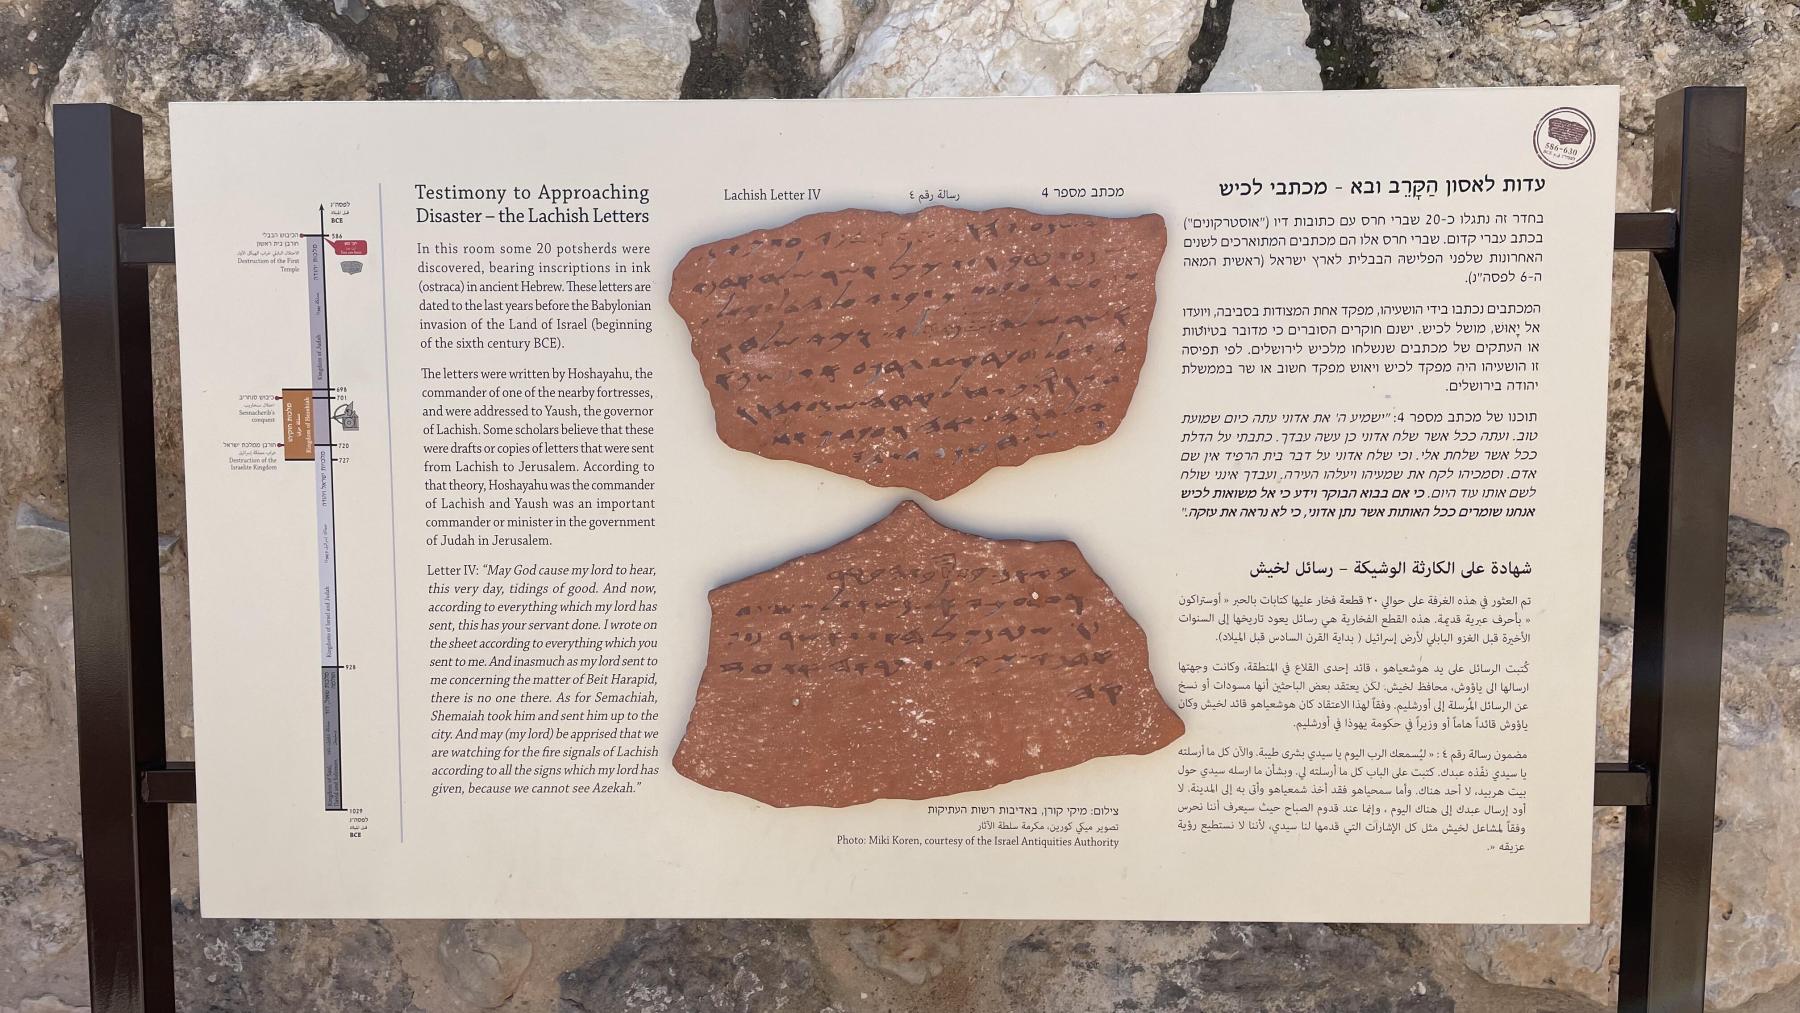 Testimony to Approaching
Disaster – the Lachish Letters
In this room some 20 potsherds were
discovered, bearing inscriptions in ink
(ostraca) in ancient Hebrew. These letters are
dated to the last years before the Babylonian
invasion of the Land of Israel (beginning
of the sixth century BCE).
The letters were written by Hoshayahu, the
commander of one of the nearby fortresses,
and were addressed to Yaush, the governor
of Lachish. Some scholars believe that these
were drafts or copies of letters that were sent
from Lachish to Jerusalem. According to
that theory, Hoshayahu was the commander
of Lachish and Yaush was an important
commander or minister in the government
of Judah in Jerusalem.
Letter IV: “May God cause my lord to hear,
this very day, tidings of good. And now,
according to everything which my lord has
sent, this has your servant done. I wrote on
the sheet according to everything which you
sent to me. And inasmuch as my lord sent to
me concerning the matter of Beit Harapid,
there is no one there. As for Semachiah,
Shemaiah took him and sent him up to the
city. And may (my lord) be apprised that we
are watching for the fire signals of Lachish
according to all the signs which my lord has
given, because we cannot see Azekah.”
Lachish Letter IV
رسالة رقم ٤
מכתב מספר 4
צילום: מיקי קורן, באדיבות רשות העתיקות
تصوير ميكي كورين، مكرمة سلطة الآثار
Photo: Miki Koren, courtesy of the Israel Antiquities Authority
586-630
עדות לאסון הַקָּרֵב ובא - מכתבי לכיש
בחדר זה נתגלו כ-20 שברי חרס עם כתובות דיו ("אוסטרקונים")
בכתב עברי קדום. שברי חרס אלו הם מכתבים המתוארכים לשנים
האחרונות שלפני הפלישה הבבלית לארץ ישראל (ראשית המאה
ה-6 לפסה"נ).
המכתבים נכתבו בידי הושעיהו, מפקד אחת המצודות בסביבה, ויועדו
אל יָאוּש, מושל לכיש. ישנם חוקרים הסוברים כי מדובר בטיוטות
או העתקים של מכתבים שנשלחו מלכיש לירושלים. לפי תפיסה
זו הושעיהו היה מפקד לכיש ויאוש מפקד חשוב או שר בממשלת
יהודה בירושלים.
תוכנו של מכתב מספר 4: "ישמיע ה' את אדוני עתה כיום שמועת
טוב. ועתה ככל אשר שלח אדוני כן עשה עבדך. כתבתי על הדלת
ככל אשר שלחת אלי. וכי שלח אדוני על דבר בית הרפיד אין שם
אדם. וסמכיהו לקח את שמעיהו ויעלהו העירה, ועבדך אינני שולח
לשם אותו עוד היום. כי אם בבוא הבוקר וידע כי אל משואות לכיש
אנחנו שומרים ככל האותות אשר נתן אדוני, כי לא נראה את עזקה."
شهادة على الكارثة الوشيكة – رسائل لخيش
تم العثور في هذه الغرفة على حوالي ٢٠ قطعة فخار عليها كتابات بالحبر « أوستراكون
» بأحرف عبرية قديمة. هذه القطعة الفخارية هي رسائل يعود تاريخها إلى السنوات
الأخيرة قبل الغزو البابلي لأرض إسرائيل ( بداية القرن السادس قبل الميلاد).
كُتبت الرسائل على يد هوشعياهو ، قائد إحدى القلاع في المنطقة، وكانت وجهتها
ارسالها الى ياؤوش، محافظ لخيش. لكن يعتقد بعض الباحثين أنها مسودات أو نسخ
عن الرسائل المُرسلة إلى أورشليم. وفقاً لهذا الاعتقاد كان هوشعياهو قائد لخيش وكان
ياؤوش قائداً هاماً أو وزيراً في حكومة يهودا في أورشليم.
مضمون رسالة رقم ٤ : « ليُسمعك الرب اليوم يا سيدي بشرى طيبة. والآن كل ما أرسلته
يا سيدي نفّذه عبدك. كتبت على الباب كل ما أرسلته لي. وبشأن ما ارسله سيدي حول
بيت هربيد، لا أحد هناك. وأما سمحياهو فقد أخذ شمعياهو وأتى به إلى المدينة. لا
أود إرسال عبدك إلى هناك اليوم ، وإنما عند قدوم الصباح حيث سيعرف أننا نحرس
وفقاً لمشاعل لخيش مثل كل الإشارات التي قدمها لنا سيدي، لأننا لا نستطيع رؤية
عزيقه ».
לפסה"נ
قبل الميلاد
BCE
586
הכיבוש הבבלי
חורבן בית ראשון
Destruction of the First
Temple
Kingdom of Judah
698
701
כיבוש סנחריב
Sennacherib's
conquest
מלכות חזקיהו
Kingdom of Hezekiah
720
חורבן ממלכת ישראל
Destruction of the
Israelite Kingdom
727
Kingdoms of Israel and Judah
928
1029
לפסה"נ
قبل الميلاد
BCE